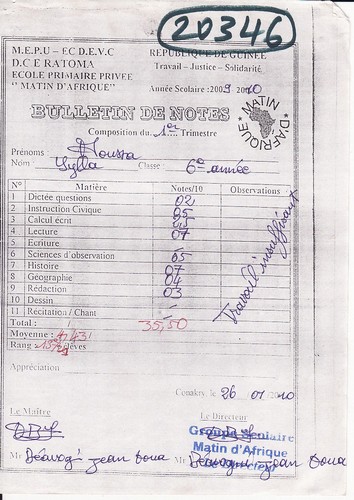 20346
M.E.P.U - EC D.E.V.C
REPUBLIQUE DE GUINEE
D.C E RATOMA
Travail - Justice - Solidarité
ECOLE PRIMAIRE PRIVEE
" MATIN D'AFRIQUE"
Année Scolaire : 2009 2010
MATIN D'AFRIQUE
BULLETIN DE NOTES
Composition du 1er Trimestre
Prénoms : Moussa
Nom : Sylla Classe : 6e année
N° Matière Notes/10 Observations
1 Dictée questions 02
2 Instruction Civique 05
3 Calcul écrit
4 Lecture 07
5 Ecriture
6 Sciences d'observation 05
7 Histoire 07
8 Géographie 04
9 Rédaction 03
10 Dessin
11 Récitation / Chant
Travail insuffisant
Total : 35,50
Moyenne : 4,43
Rang : élèves
Appréciation
Conakry, le 26 01 2010
Le Maître Le Directeur
Groupe Scolaire
Matin d'Afrique
Directeur
Mr Jean Mr Jean